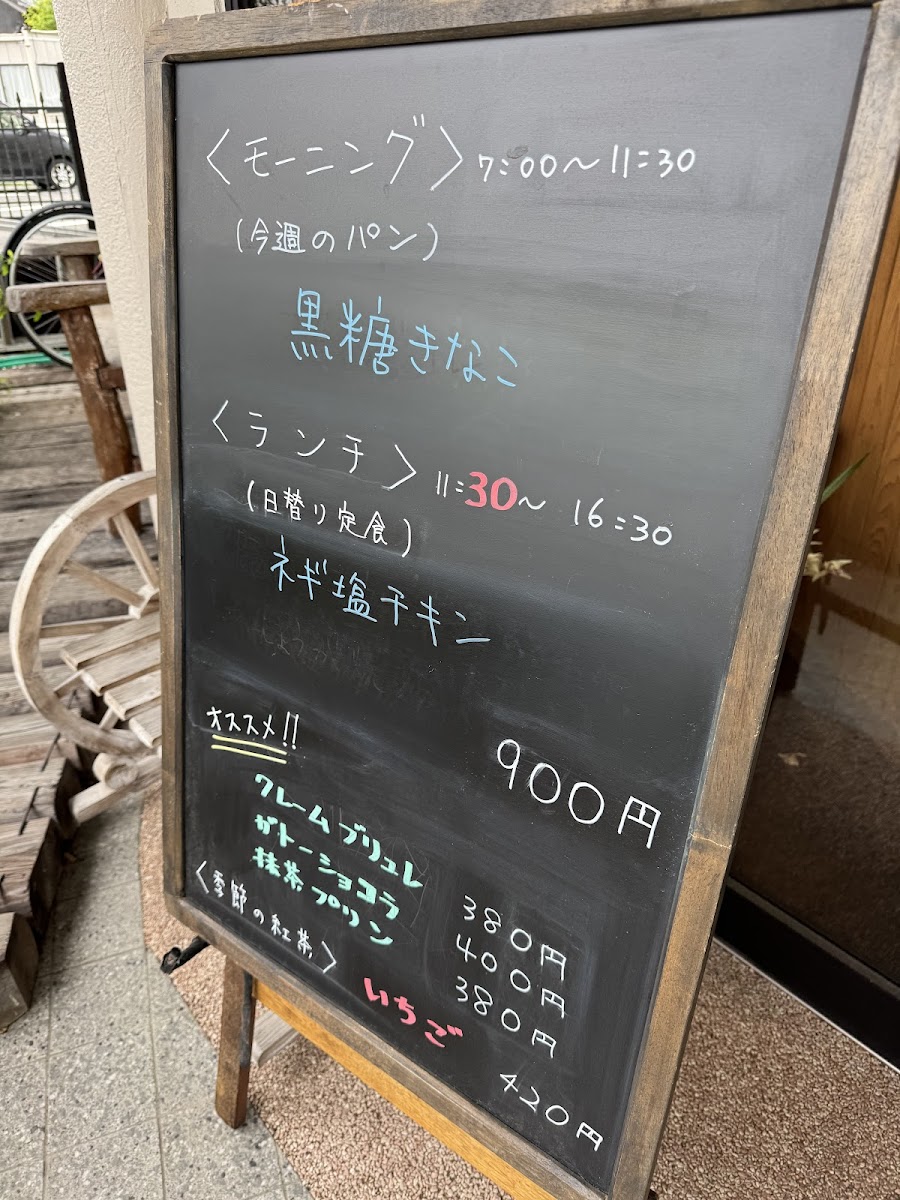 〈モーニング〉7:00〜11:30
(今週のパン)
黒糖きなこ
〈ランチ〉11:30〜16:30
(日替り定食)
ネギ塩チキン
900円
オススメ!!
クレームブリュレ 380円
ガトーショコラ 400円
抹茶プリン 380円
〈季節の紅茶〉
いちご 420円